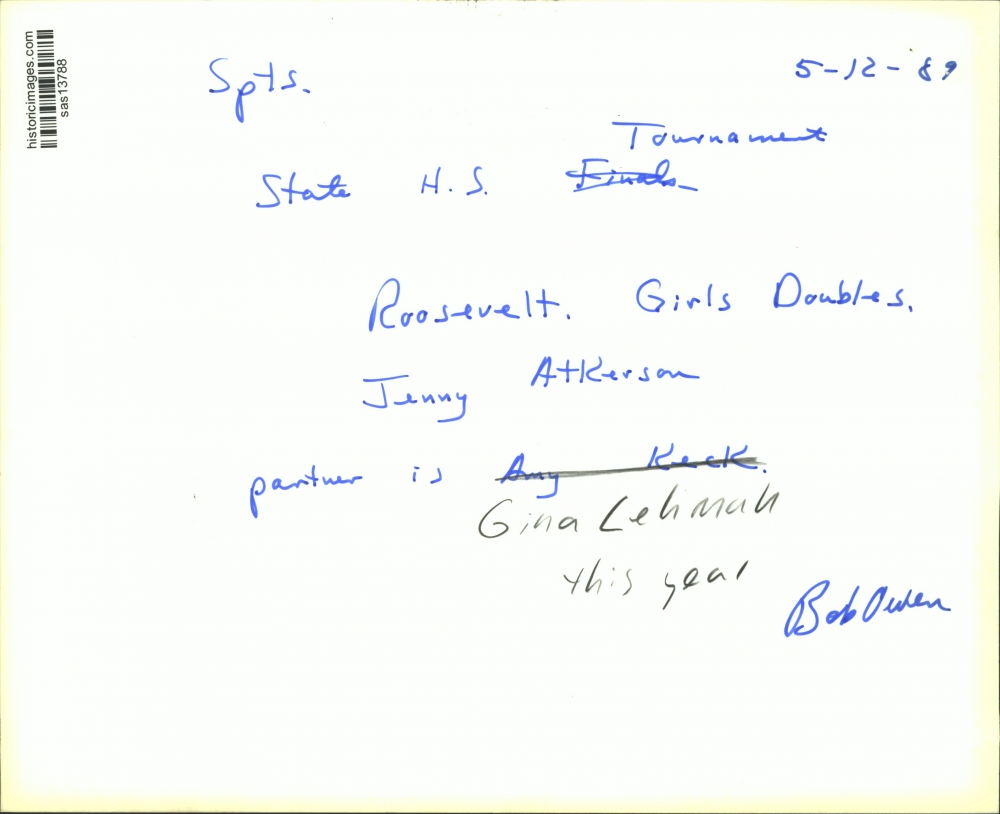 historicimages.com
sas13788
Spts. 5-12-89
Tournament
State H.S. Finals
Roosevelt. Girls Doubles.
Jenny Atkerson
partner is Amy Keck.
Gina Lehman
this year
Bob Owen